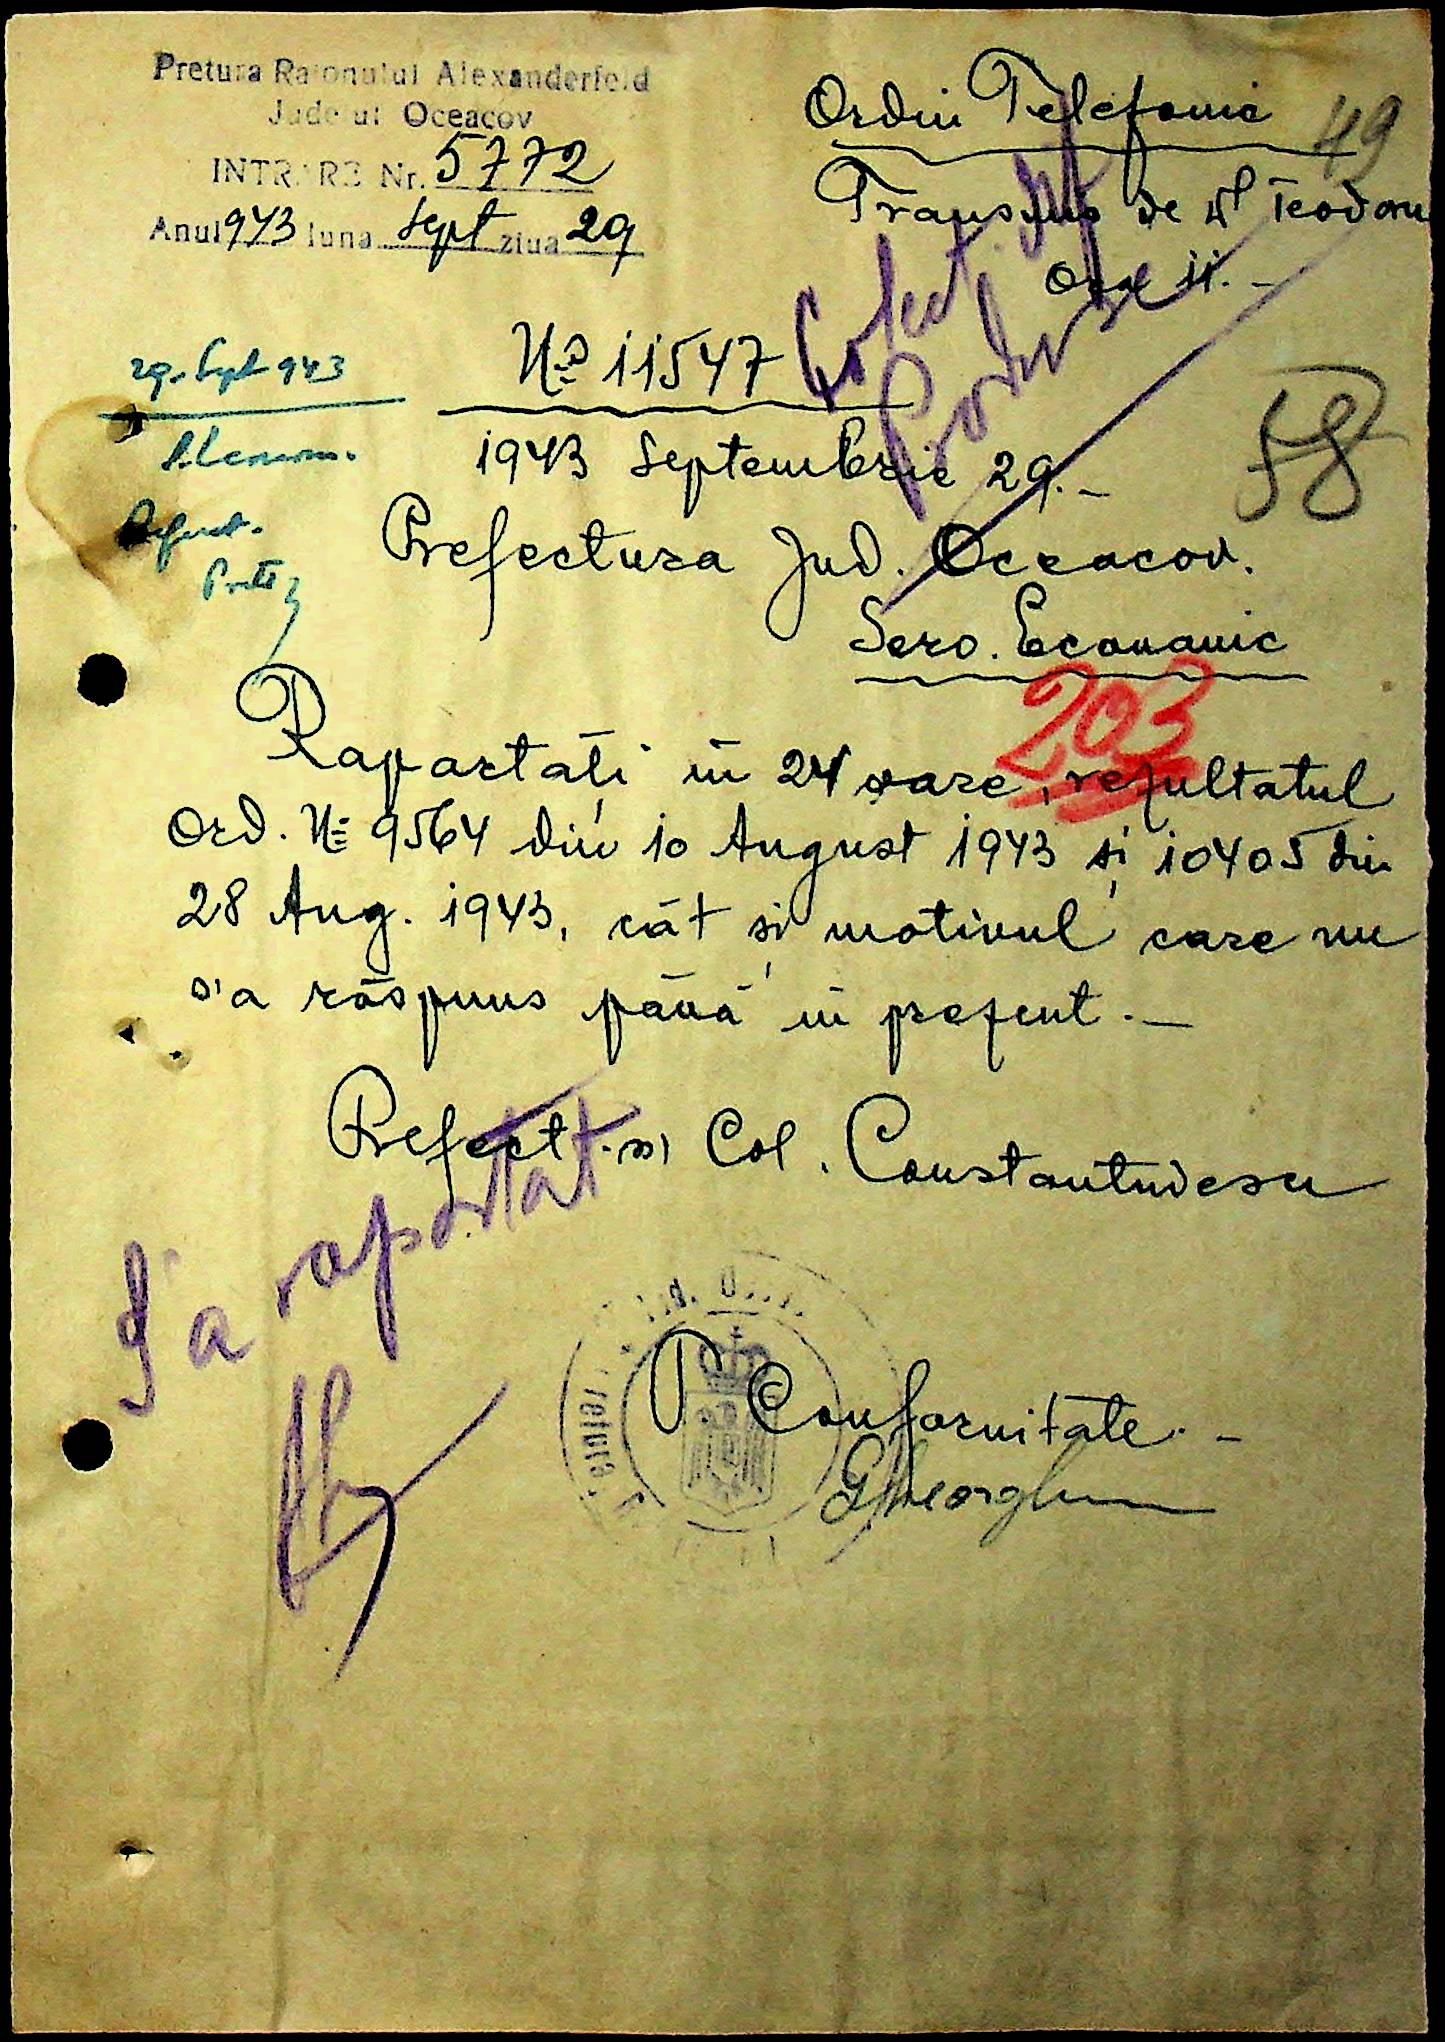 Pretura Raionului Alexanderfeld
Județul Oceacov
INTRARE Nr. 5772
Anul 943 luna Sept ziua 29
Ordin Telefonic
49
Transmis de Dl Teodoru
Ora 11.-
Colect.
Produse
29. Sept 943
No 11547
58
1943 Septembrie 29.-
Prefectura Jud. Oceacov.
Serv. Economic
203
Raportați în 24 oare, rezultatul
Ord. No 9564 din 10 August 1943 și 10405 din
28 Aug. 1943, cât și motivul care nu
s'a răspuns până în prezent.-
Prefect. ss) Col. Constantinescu
S'a raportat
P Conformitate.-
Gheorghe